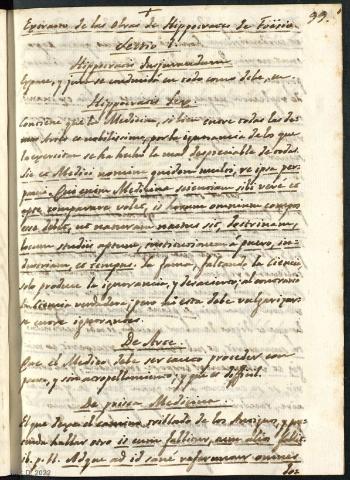 99.
Epitome de las Obras de Hippocrates de Foësio.
Sectio 1.
Hippocratis Jusjurandum
Hippocratis Lex
Contiene que la Medicina, si bien entre todas las de-
mas Artes es nobilissima, por la ignorancia de los que
la exercitan se ha hecho la mas despreciable de todas.
Sic et Medici nomine quidem multi, re ipsa per-
pauci. Qui enim Medicinæ scientiam sibi vere et
opte comparare volet, is horum omnium compos
esse debet, ut naturam nactus sit, doctrinam,
locum studiis aptum, institutionem à puero, in-
dustriam, et tempus. La fama, faltando la ciencia
solo produce la ignorancia, y desacierto, al contrario
la Ciencia verdadera; pero ni esta debe vulgarizar-
se entre ignorantes.
De Arte.
Que el Medico debe ser cauto proceder con
pausa, y sin atropellamiento, y que es dificil.
De prisca Medicina.
El que dexa el camino trillado de los Antiguos, y pre-
tenda hallar otro is cum fallitur, tum alios fallit
ib. p. 11. Atque ad id sané referantur omnes
los